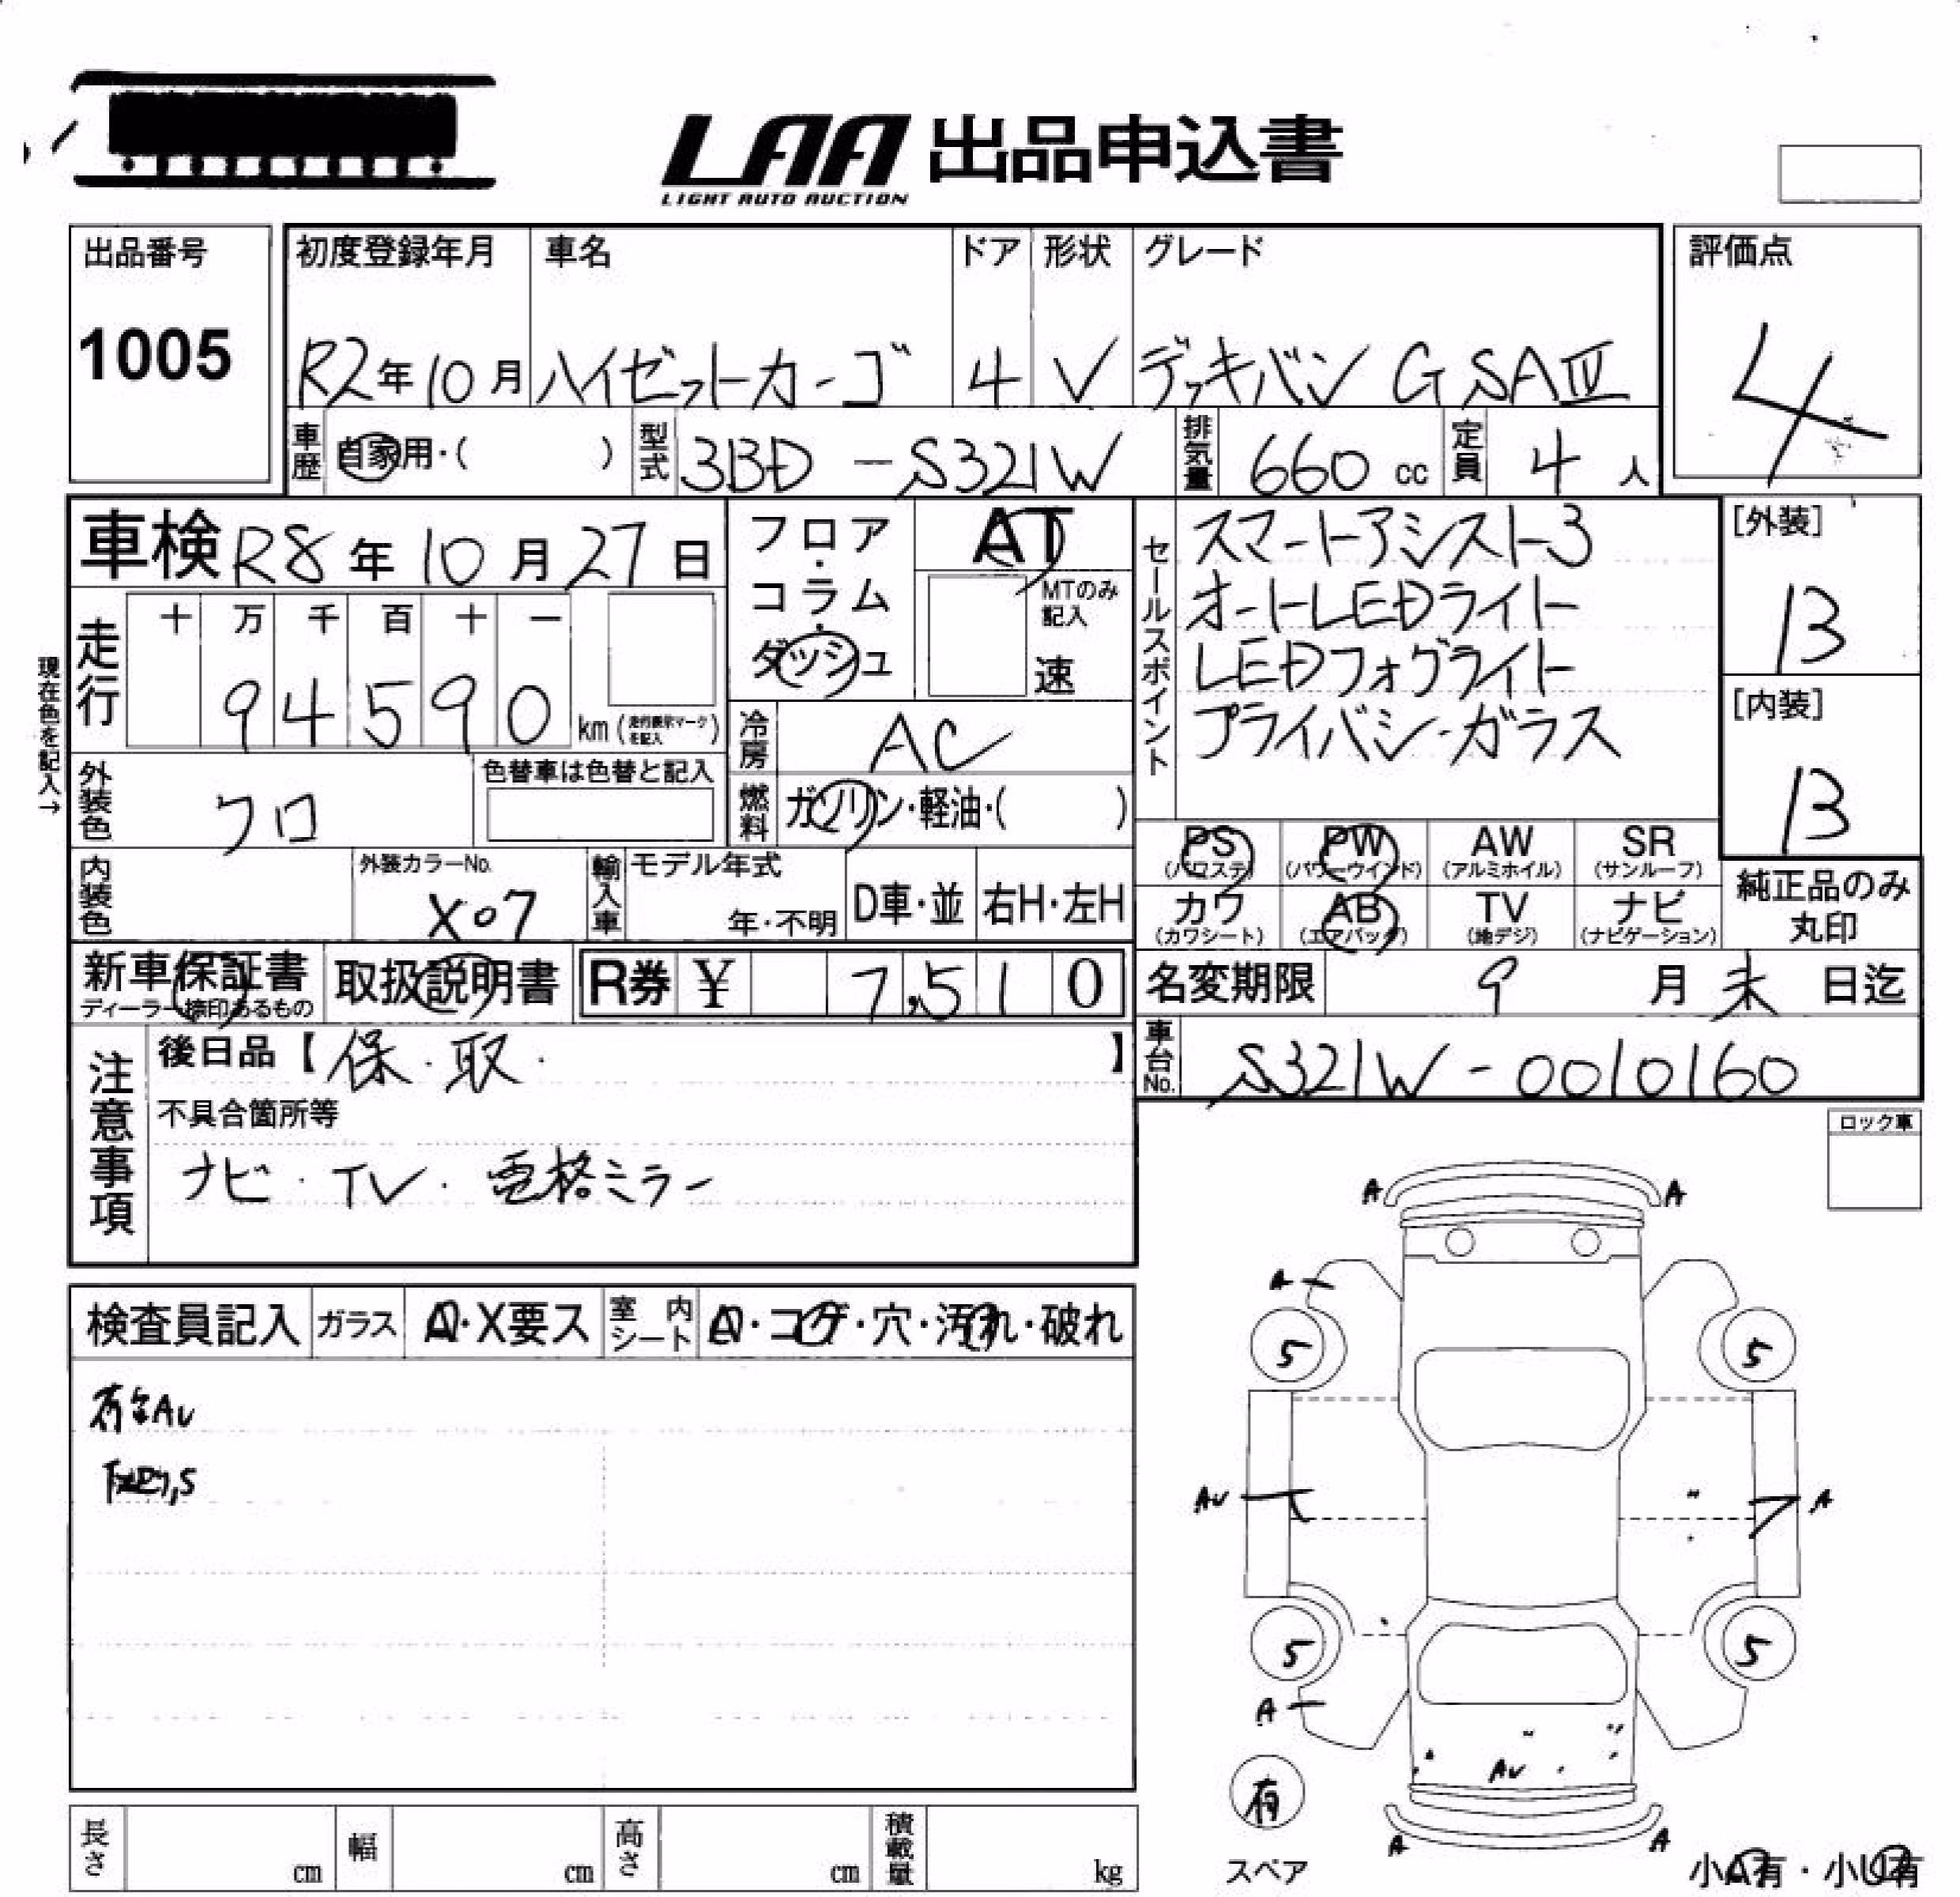 LAA 出品申込書
LIGHT AUTO AUCTION
出品番号
1005
初度登録年月
R2年10月
車名
ハイゼットカーゴ
ドア
4
形状
V
グレード
デッキバン G SAⅢ
評価点
4
車歴 自家用・( )
型式 3BD-S321W
排気量 660 cc
定員 4 人
車検 R8年10月27日
フロア・コラム・ダッシュ
AT
MTのみ記入
速
セールスポイント
スマートアシスト3
オートLEDライト
LEDフォグライト
プライバシーガラス
[外装]
13
[内装]
13
現在色を記入→
走行
十 万 千 百 十 一
94590 km (走行表示マークを記入)
冷房 AC
外装色 クロ
色替車は色替と記入
燃料 ガソリン・軽油・( )
内装色
外装カラーNo.
X07
輸入車
モデル年式
年・不明
D車・並
右H・左H
PS (パワステ)
PW (パワーウインド)
AW (アルミホイル)
SR (サンルーフ)
カワ (カワシート)
AB (エアバッグ)
TV (地デジ)
ナビ (ナビゲーション)
純正品のみ丸印
新車保証書
ディーラー捺印あるもの
取扱説明書
R券 ¥ 7,510
名変期限 9月末日迄
車台No. S321W-0010160
注意事項
後日品【保・取・】
不具合箇所等
ナビ・TV・電格ミラー
ロック車
検査員記入
ガラス A・X要ス
室内シート A・コゲ・穴・汚れ・破れ
A A
A
5 5
AU A
5 5
A
AU
A A
有
スペア
小A有・小U有
長さ cm
幅 cm
高さ cm
積載量 kg